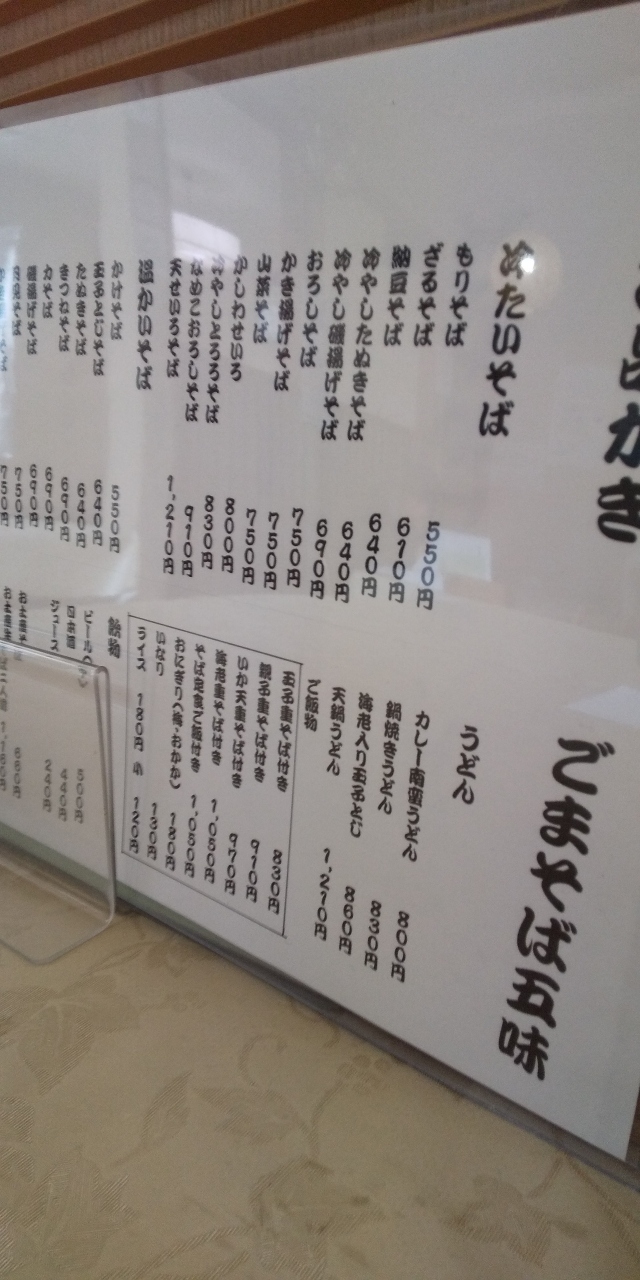 ごまそば五味
冷たいそば
もりそば 550円
ざるそば 610円
納豆そば 640円
冷やしたぬきそば 640円
冷やし磯揚げそば 690円
おろしそば 750円
かき揚げそば 750円
山菜そば 750円
かしわせいろ 800円
冷やしとろろそば 830円
なめこおろしそば 910円
天せいろそば 1,210円
温かいそば
かけそば 550円
玉子とじそば 640円
たぬきそば 640円
きつねそば 690円
力そば 690円
磯揚げそば 690円
月見そば 750円
750円
うどん
カレー南蛮うどん 800円
鍋焼きうどん 830円
海老入り玉子とじ 860円
天鍋うどん 1,210円
ご飯物
玉子重そば付き 830円
親子重そば付き 910円
いか天重そば付き 970円
海老重そば付き 1,050円
そば定食ご飯付き 1,050円
おにぎり(梅・おかか) 180円
いなり 130円
ライス 180円 小 120円
飲物
500円
日本酒 440円
ジュース 240円